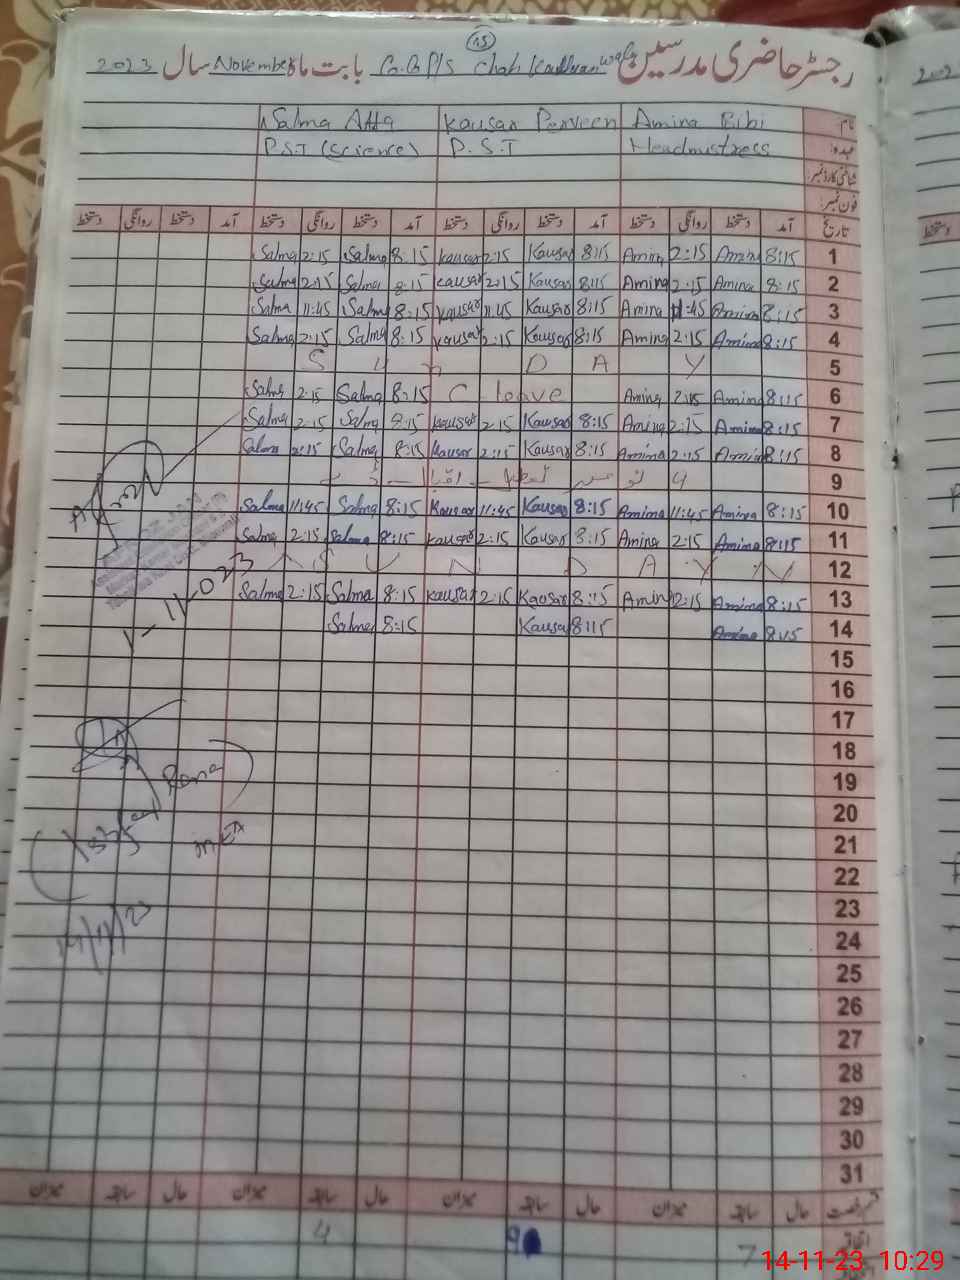 15
رجسٹر حاضری مدرسین G.G P/S Chah Kadhran wala بابت ماہ November سال 2023
نام Amina Bibi Kausar Perveen Salma Atta
عہدہ: Headmistress P.S.T P.S.T (Science)
شناختی کارڈ نمبر:
فون نمبر:
تاریخ آمد دستخط روانگی دستخط آمد دستخط روانگی دستخط آمد دستخط روانگی دستخط آمد دستخط روانگی دستخط
1 8:15 Amina 2:15 Amina 8:15 Kausar 2:15 Kausar 8:15 Salma 2:15 Salma
2 8:15 Amina 2:15 Amina 8:15 Kausar 2:15 Kausar 8:15 Salma 2:15 Salma
3 8:15 Amina 11:45 Amina 8:15 Kausar 11:45 Kausar 8:15 Salma 11:45 Salma
4 8:15 Amina 2:15 Amina 8:15 Kausar 2:15 Kausar 8:15 Salma 2:15 Salma
5 S U N D A Y
6 8:15 Amina 2:15 Amina C leave 8:15 Salma 2:15 Salma
7 8:15 Amina 2:15 Amina 8:15 Kausar 2:15 Kausar 8:15 Salma 2:15 Salma
8 8:15 Amina 2:15 Amina 8:15 Kausar 2:15 Kausar 8:15 Salma 2:15 Salma
9 9 نومبر تعطیل اقبال ڈے
10 8:15 Amina 11:45 Amina 8:15 Kausar 11:45 Kausar 8:15 Salma 11:45 Salma
11 8:15 Amina 2:15 Amina 8:15 Kausar 2:15 Kausar 8:15 Salma 2:15 Salma
12 S U N D A Y
13 8:15 Amina 2:15 Amina 8:15 Kausar 2:15 Kausar 8:15 Salma 2:15 Salma
14 8:15 Amina 8:15 Kausar 8:15 Salma
15
16
17
18
19
20
21
22
23
24
25
26
27
28
29
30
31
Rana
MEA
14/11/23
قسم رخصت حال سابقہ میزان حال سابقہ میزان حال سابقہ میزان حال سابقہ میزان
اتفاقیہ 7 9 4
14-11-23 10:29